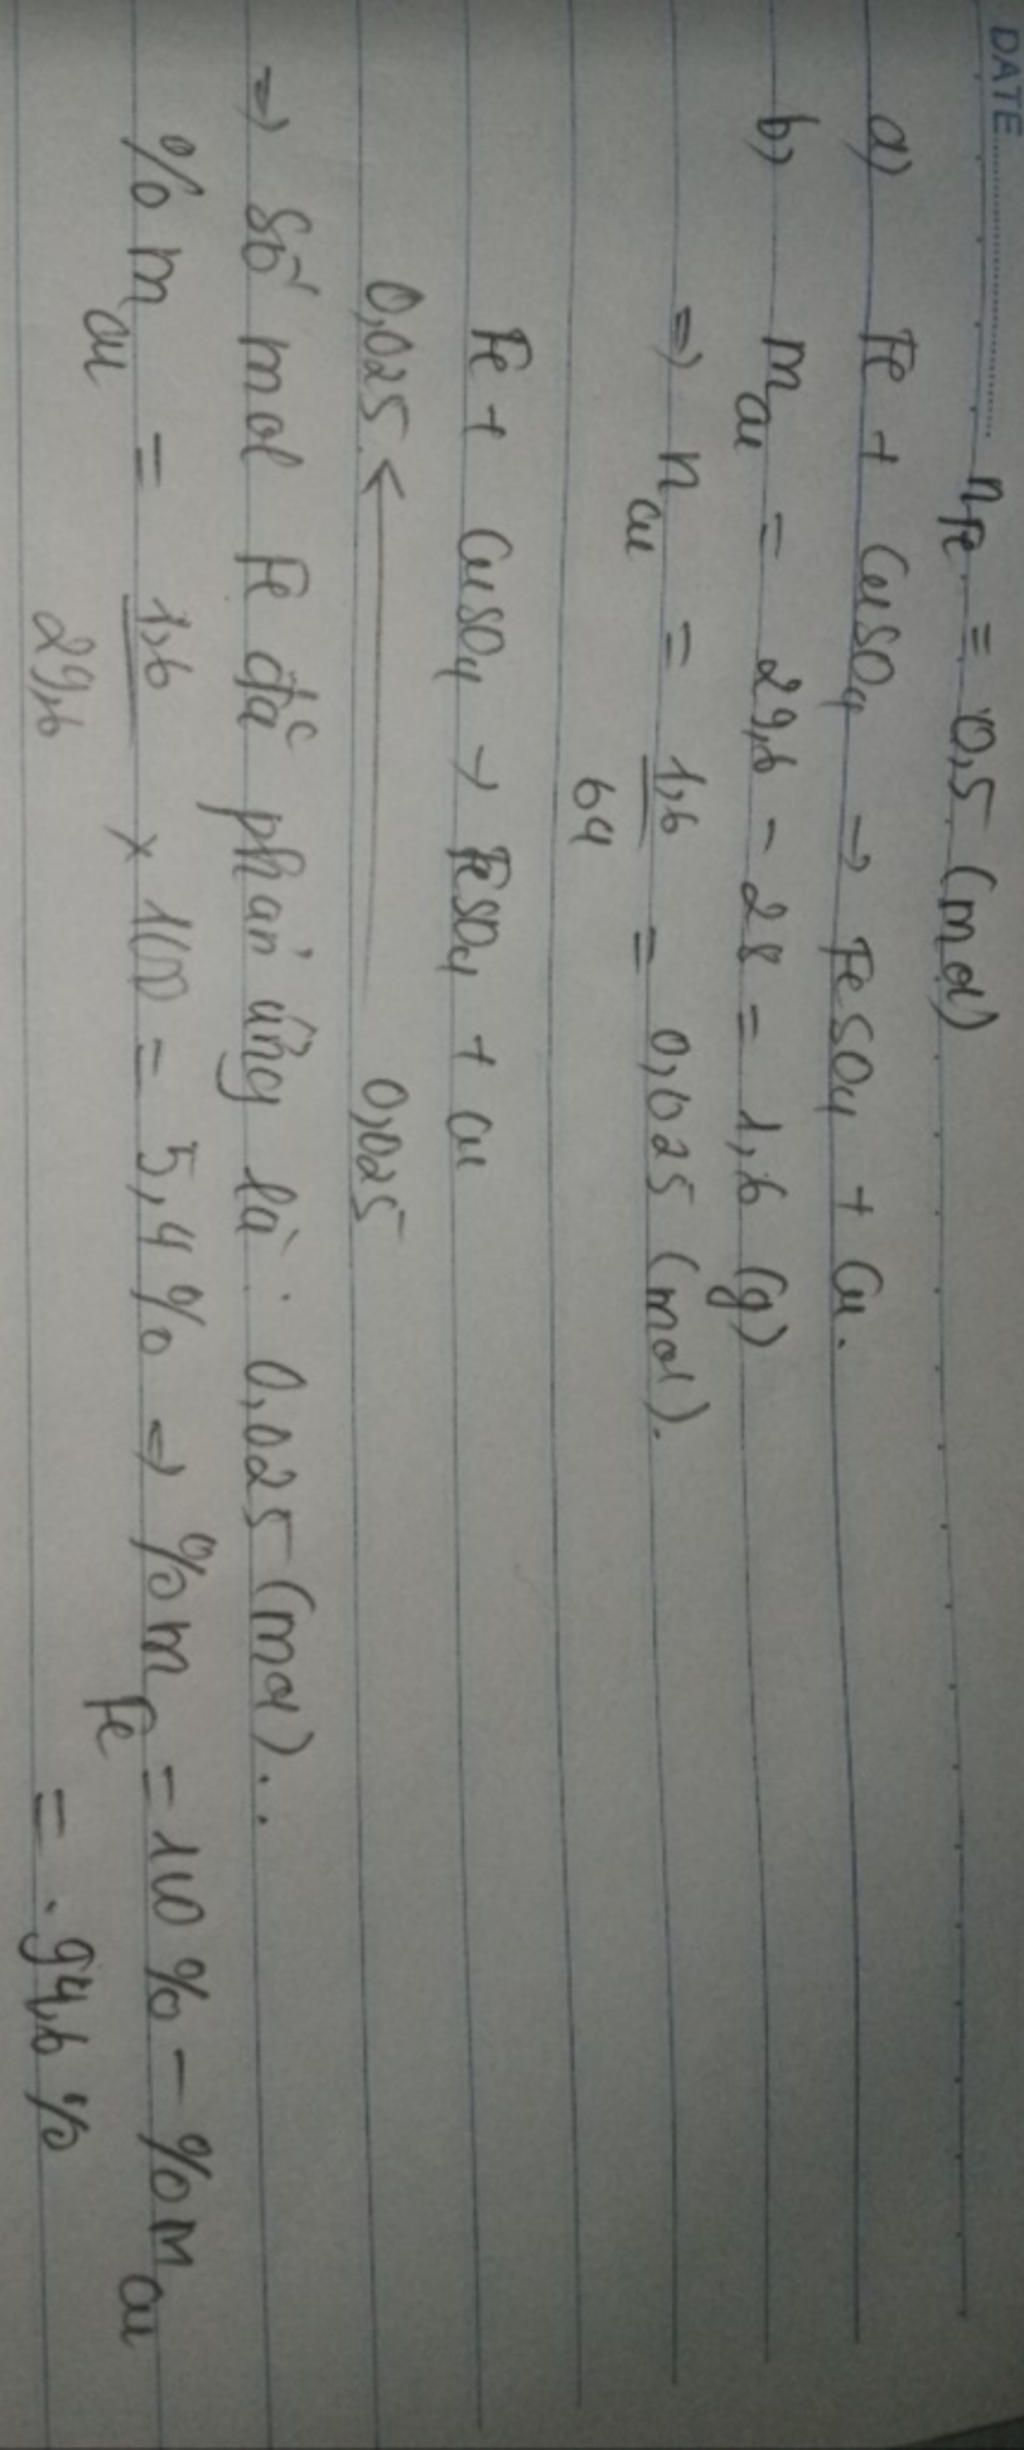 DATE
nFe = 0,5 (mol)
a) Fe + CuSO4 → FeSO4 + Cu.
b) mCu = 29,6 - 28 = 1,6 (g)
=> nCu = 1,6 / 64 = 0,025 (mol).
Fe + CuSO4 → FeSO4 + Cu
0,025 ← 0,025
=> Số mol Fe đã phản ứng là : 0,025 (mol)..
% mCu = 1,6 / 29,6 x 100 = 5,4 % => % mFe = 100 % - % mCu
= 94,6 %